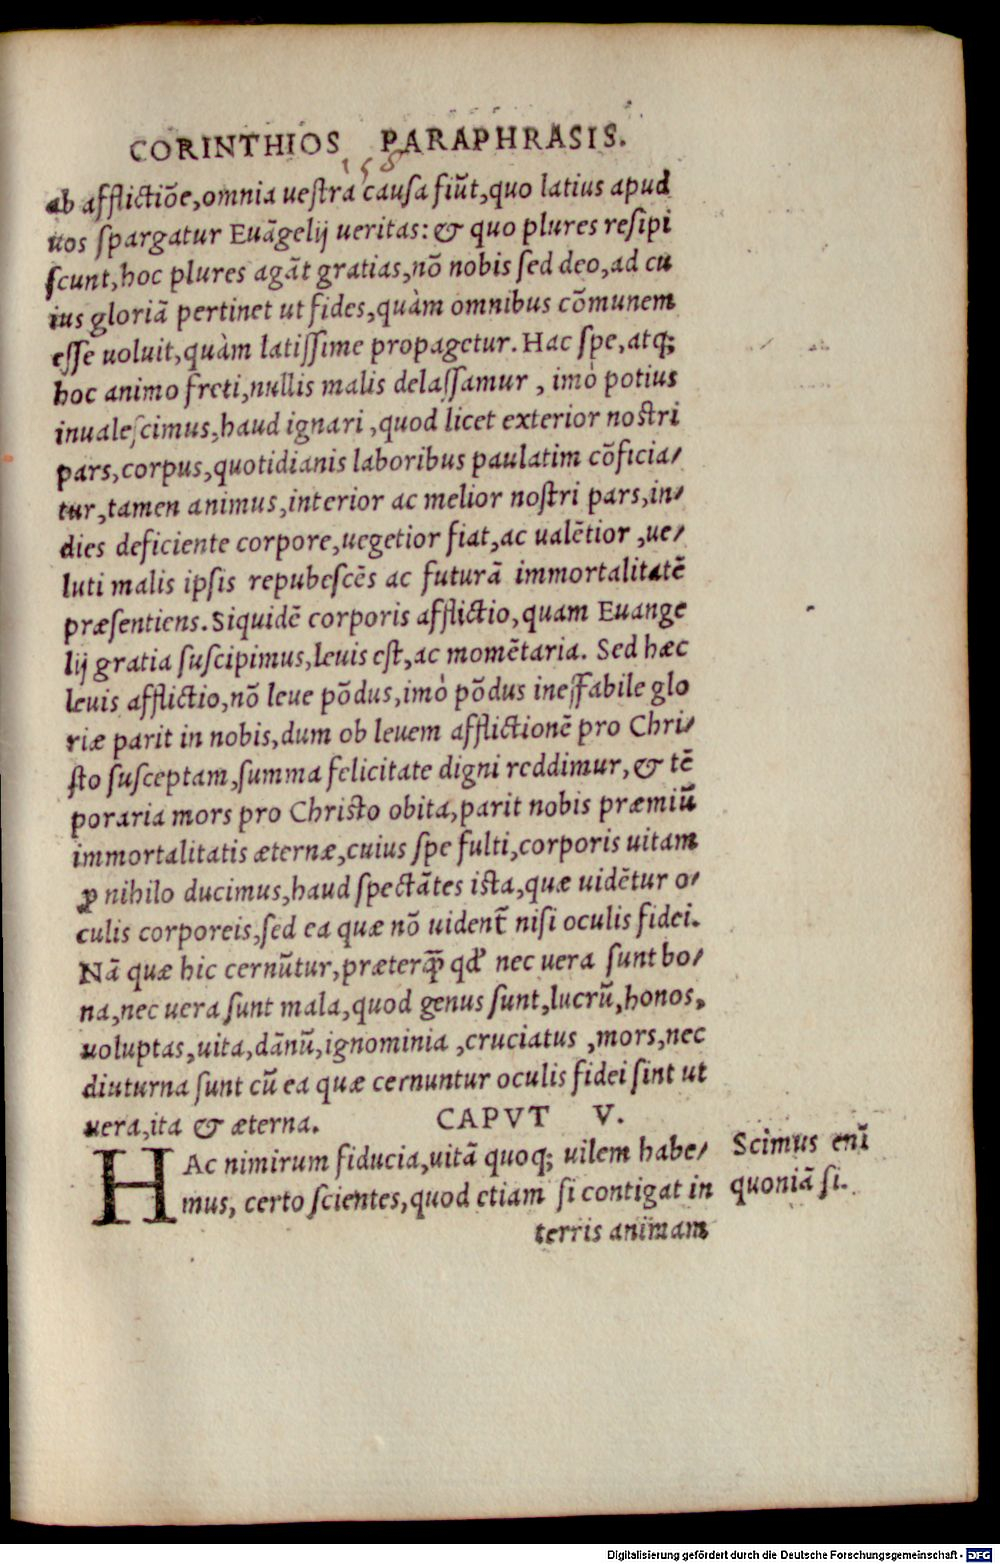 CORINTHIOS PARAPHRASIS.
158
ab afflictiõe,omnia uestra causa fiũt,quo latius apud
uos spargatur Euãgelij ueritas: & quo plures resipi
scunt,hoc plures agãt gratias,nõ nobis sed deo,ad cu
ius gloriã pertinet ut fides,quàm omnibus cõmunem
esse uoluit,quàm latissime propagetur. Hac spe,atq;
hoc animo freti,nullis malis delassamur , imò potius
inualescimus,haud ignari ,quod licet exterior nostri
pars,corpus,quotidianis laboribus paulatim cõficia/
tur,tamen animus,interior ac melior nostri pars,in/
dies deficiente corpore,uegetior fiat,ac ualẽtior ,ue/
luti malis ipsis repubescẽs ac futurã immortalitatẽ
præsentiens. Siquidẽ corporis afflictio,quam Euange
lij gratia suscipimus,leuis est,ac momẽtaria. Sed hæc
leuis afflictio,nõ leue põdus,imò põdus ineffabile glo
riæ parit in nobis,dum ob leuem afflictionẽ pro Chri/
sto susceptam,summa felicitate digni reddimur,& tẽ
poraria mors pro Christo obita,parit nobis præmiũ
immortalitatis æternæ,cuius spe fulti,corporis uitam
ꝓ nihilo ducimus,haud spectãtes ista,quæ uidẽtur o/
culis corporeis,sed ea quæ nõ uident̃ nisi oculis fidei.
Nã quæ hic cernũtur,præterq̃ꝫ qđ nec uera sunt bo/
na,nec uera sunt mala,quod genus sunt,lucrũ,honos,
uoluptas,uita,dãnũ,ignominia ,cruciatus ,mors,nec
diuturna sunt cũ ea quæ cernuntur oculis fidei sint ut
uera,ita & æterna. CAPVT V.
HAc nimirum fiducia,uitã quoq; uilem habe/
mus, certo scientes,quod etiam si contigat in
terris animam
Scimus enĩ
quoniã si.
Digitalisierung gefördert durch die Deutsche Forschungsgemeinschaft - DFG